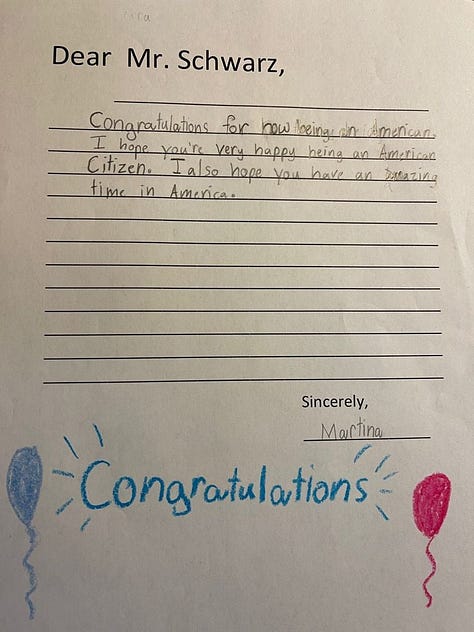 Dear Mr. Schwarz,
Congratulations for now being an American.
I hope you're very happy being an American
Citizen. I also hope you have an amazing
time in America.
Sincerely,
Martina
Congratulations